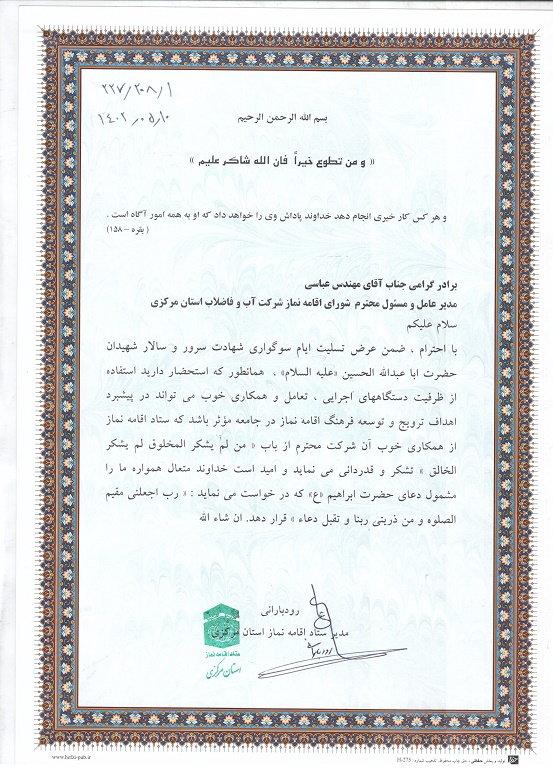 ۲۲۷/۲۰۸/۱
۱۴۰۲/۰۵/۱۰
بسم الله الرحمن الرحیم
« و من تطوع خیراً فان الله شاکر علیم »
و هر کس کار خیری انجام دهد خداوند پاداش وی را خواهد داد که او به همه امور آگاه است .
( بقره – ۱۵۸)
برادر گرامی جناب آقای مهندس عباسی
مدیر عامل و مسئول محترم شورای اقامه نماز شرکت آب و فاضلاب استان مرکزی
سلام علیکم
با احترام ، ضمن عرض تسلیت ایام سوگواری شهادت سرور و سالار شهیدان
حضرت ابا عبدالله الحسین «علیه السلام» ، همانطور که استحضار دارید استفاده
از ظرفیت دستگاههای اجرایی ، تعامل و همکاری خوب می تواند در پیشبرد
اهداف ترویج و توسعه فرهنگ اقامه نماز در جامعه مؤثر باشد که ستاد اقامه نماز
از همکاری خوب آن شرکت محترم از باب « من لم یشکر المخلوق لم یشکر
الخالق » تشکر و قدردانی می نماید و امید است خداوند متعال همواره ما را
مشمول دعای حضرت ابراهیم «ع» که در خواست می نماید : « رب اجعلنی مقیم
الصلوه و من ذریتی ربنا و تقبل دعاء » قرار دهد. ان شاء الله
رودبارانی
مدیر ستاد اقامه نماز استان مرکزی
ستاد اقامه نماز
استان مرکزی
www.hefzi-pub.ir
H-275